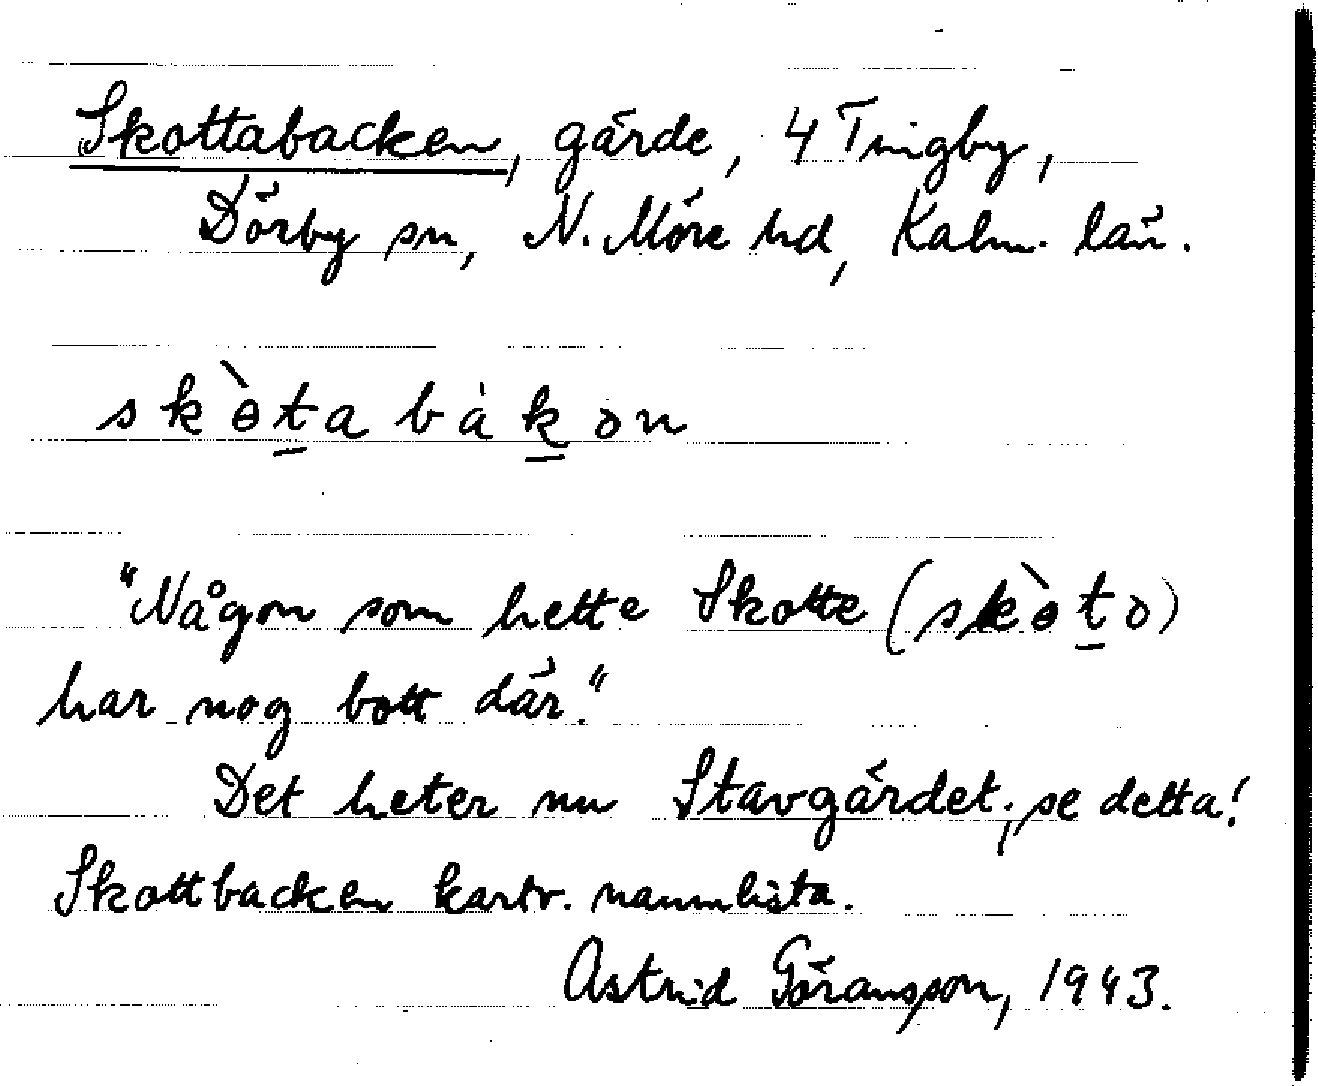 Skottabacken, gärde, 4 Tingby,
Dörby sn, N. Möre hd, Kalm. län.
skɵ̀t̲abàk̲ən
"Någon som hette Skotte (skɵ̀t̲ə)
har nog bott där."
Det heter nu Stavgärdet; se detta!
Skottbacken kartv. namnlista.
Astrid Göransson, 1943.